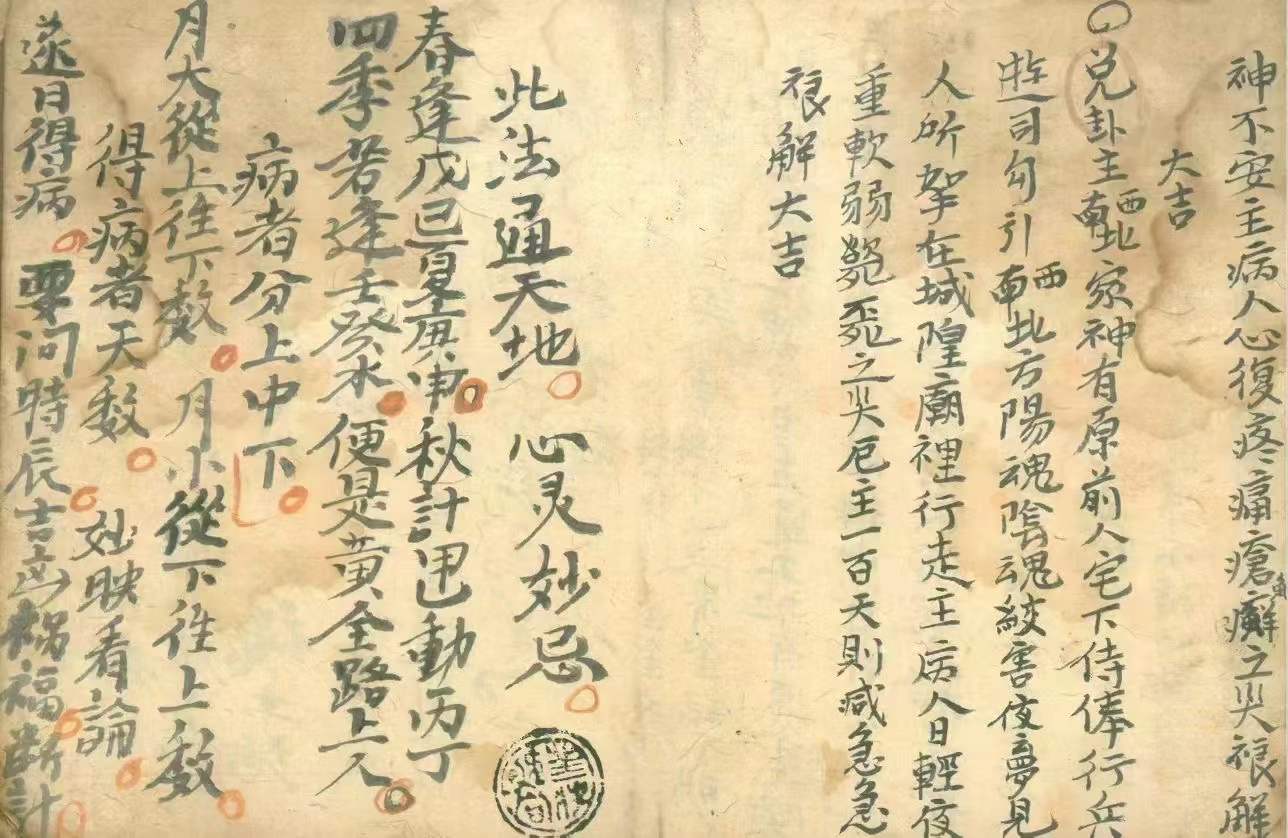 神不安主病人心復疼痛瘡癬之災禳解
大吉
兌卦主西北南家神有原前人宅下侍俸行兵
遊司勾引西北南方陽魂陰魂絞害夜夢見
人所拏在城隍廟裡行走主病人日輕夜
重軟弱之災厄主一百天則减急急
禳解大吉
此法通天地心灵妙忌
春逢戊己夏庚申秋計甲巳動丙丁
四季若逢壬癸水便是黄全路上人
病者分上中下
月大從上往下数月小從下往上数
得病者天数妙映看論
逐日得病要问時辰吉凶禍福断計